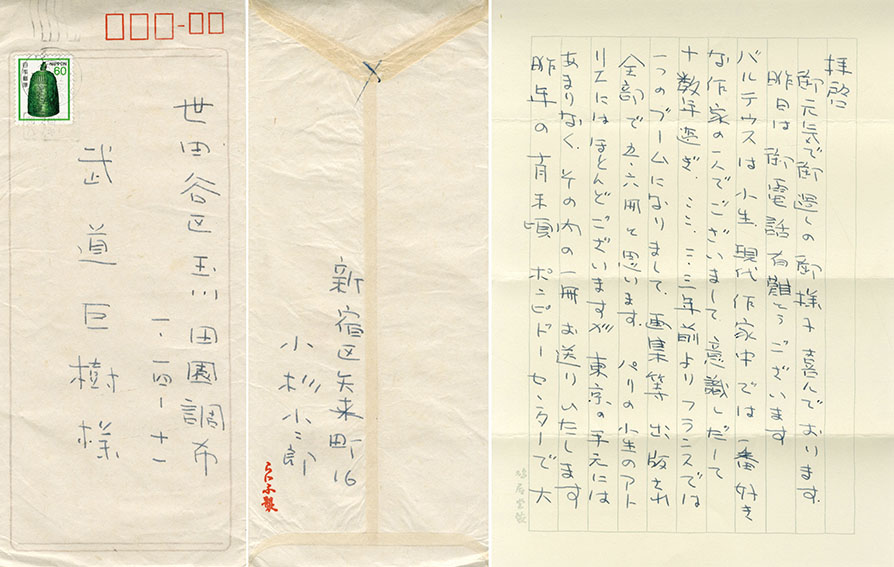 日本郵便
NIPPON
60
世田谷区玉川田園調布
一、二四、十一
武道巨樹様
新宿区矢来町16
小杉小二郎
拝啓
御元気で御過しの御様子喜んでおります。
昨日は御電話有難とうございます
バルテウスは小生、現代作家中では一番好き
な作家の一人でございまして意識しだして
十数年過ぎ、ここ二、三年前よりフランスでは
一つのブームになりまして、画集等出版され
全部で五、六冊と思います。パリの小生のアト
リエにはほとんどございますが東京の手元には
あまりなく、その内の一冊お送りいたします
昨年の 月末頃ポンピドーセンターで大
鳩居堂製